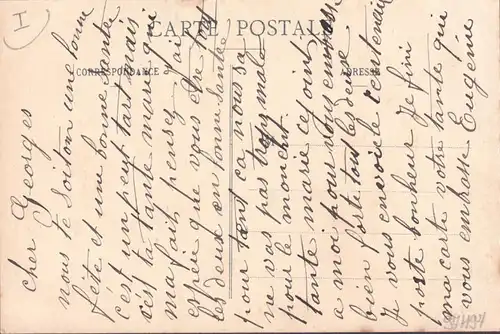 I
CARTE POSTALE
CORRESPONDANCE
ADRESSE
cher Georges
nous te soiton une bonne
fête et une bonne santer
c'est un peut tart mais
c'est ta tante marie qui
ma fait pensez j'ai
espérer que vous ete tout
les deux en bonne santé
pour tant ca nous sa
ne vas pas trop mal
pour le moment.
tante marie ce joint
a moi pour vous embrasse
bien fort tout les deux
Je vous envoie le centenair
porte bonheur Je fini
ma carte votre tante qui
vous embrasse Eugénie